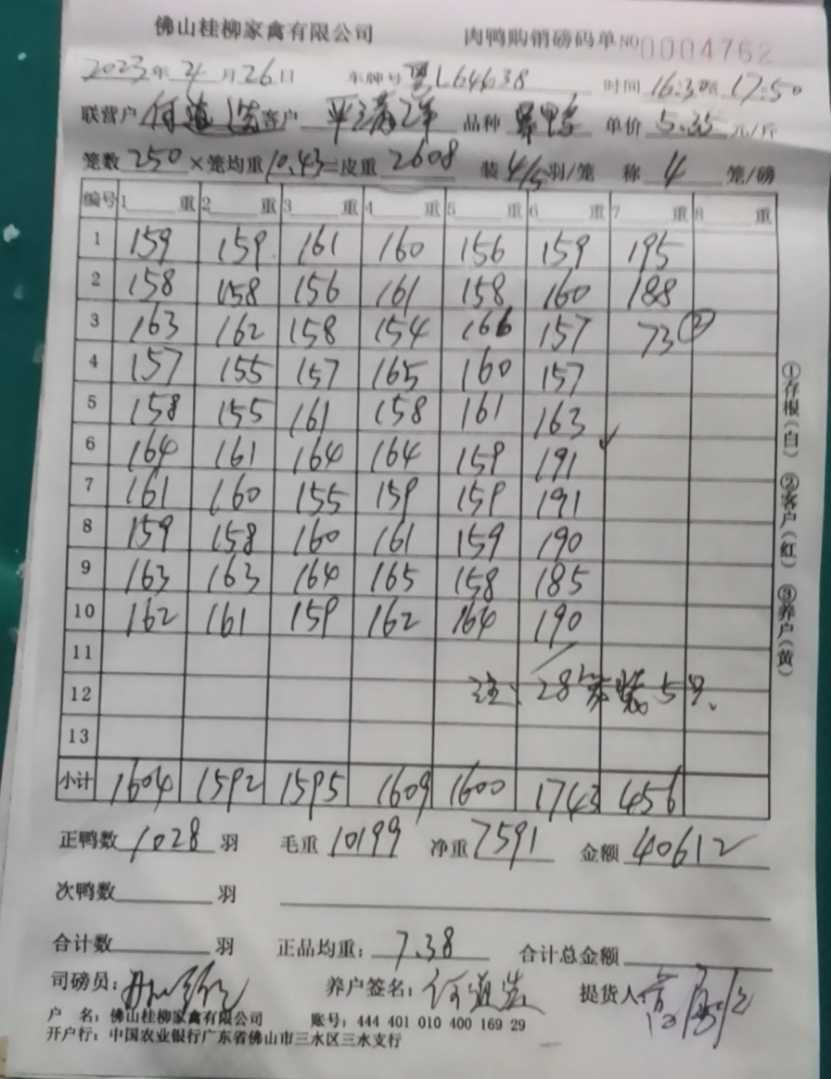 佛山桂柳家禽有限公司 肉鸭购销磅码单 NO 0004762
2023年4月26日 车牌号 粤L64638 时间 16:30 17:50
联营户 何道 客户 品种 单价 5.35 元/斤
笼数 250 ×笼均重 10.43 =皮重 2608 装 4/5 羽/笼 称 4 笼/磅
编号 1 重 2 重 3 重 4 重 5 重 6 重 7 重 8 重
1 159 159 161 160 156 159 195
2 158 158 156 161 158 160 188
3 163 162 158 154 166 157 73②
4 157 155 157 165 160 157
5 158 155 161 158 161 163
6 164 161 164 164 159 191
7 161 160 155 159 159 191
8 159 158 160 161 159 190
9 163 163 164 165 158 185
10 162 161 159 162 164 190
11
12 注: 28笼装5只.
13
小计 1604 1592 1595 1609 1600 1743 456
正鸭数 1028 羽 毛重 10199 净重 7591 金额 40612
次鸭数 羽
合计数 羽 正品均重: 7.38 合计总金额
司磅员: 养户签名: 何道 提货人
户 名: 佛山桂柳家禽有限公司 账号: 444 401 010 400 169 29
开户行: 中国农业银行广东省佛山市三水区三水支行
①存根(白) ②客户(红) ③养户(黄)